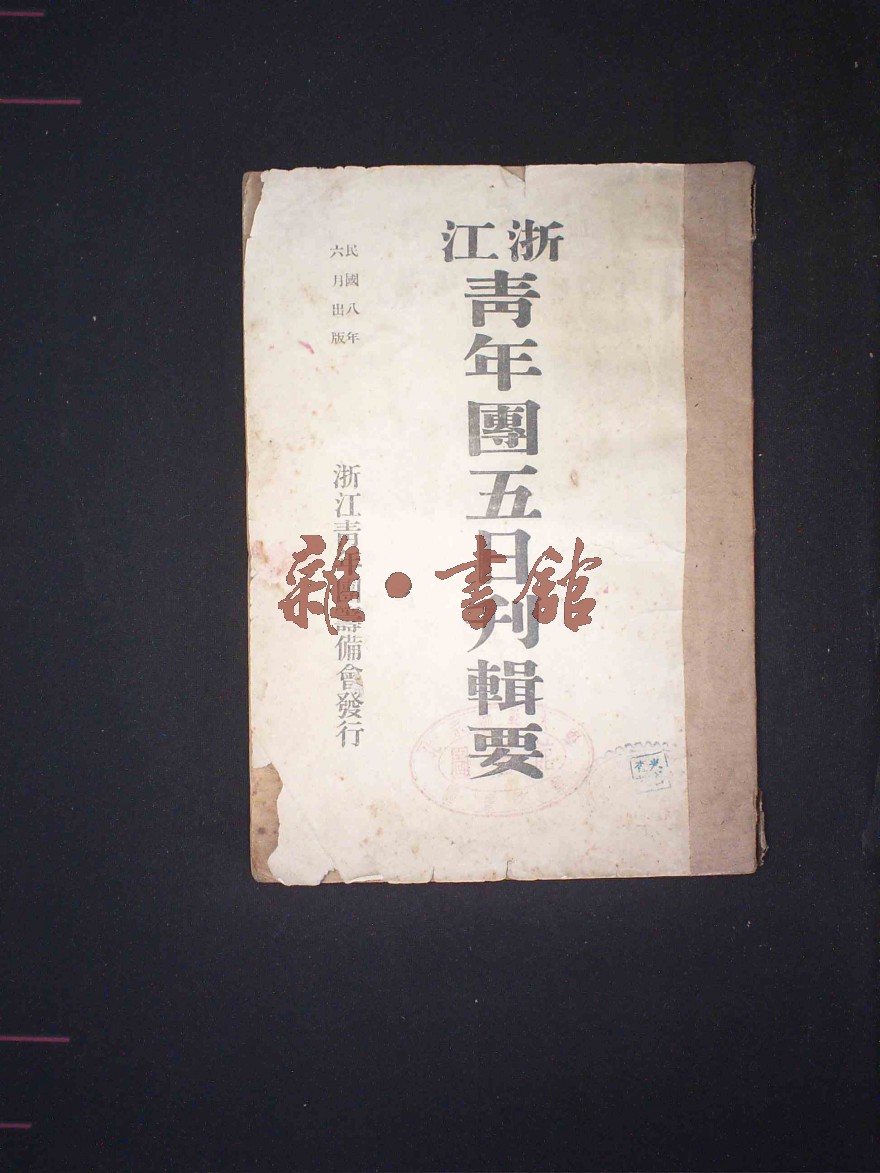 浙江
青年團五日刊輯要
民國八年
六月出版
浙江青年團籌備會發行
雜·書館